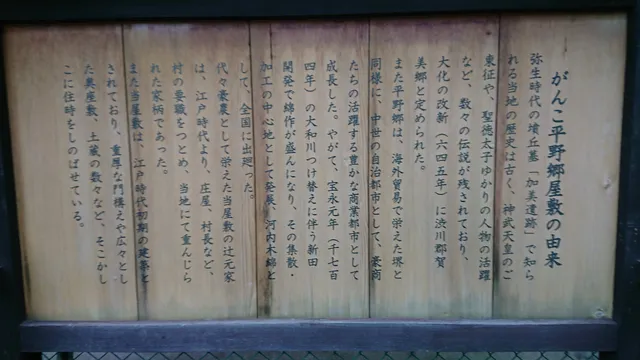 がんこ平野郷屋敷の由来
弥生時代の墳丘墓「加美遺跡」で知ら
れる当地の歴史は古く、神武天皇のご
東征や、聖徳太子ゆかりの人物の活躍
など、数々の伝説が残されており、
大化の改新(六四五年)に渋川郡賀
美郷と定められた。
また平野郷は、海外貿易で栄えた堺と
同様に、中世の自治都市として、豪商
たちの活躍する豊かな商業都市として
成長した。やがて、宝永元年(千七百
四年)の大和川つけ替えに伴う新田
開発で綿作が盛んになり、その集散・
加工の中心地として発展、河内木綿と
して、全国に出廻った。
代々豪農として栄えた当屋敷の辻元家
は、江戸時代より、庄屋、村長など、
村の要職をつとめ、当地にて重んじら
れた家柄であった。
また当屋敷は、江戸時代初期の建築と
されており、重厚な門構えや広々とし
た奥座敷、土蔵の数々など、そこかし
こに往時をしのばせている。